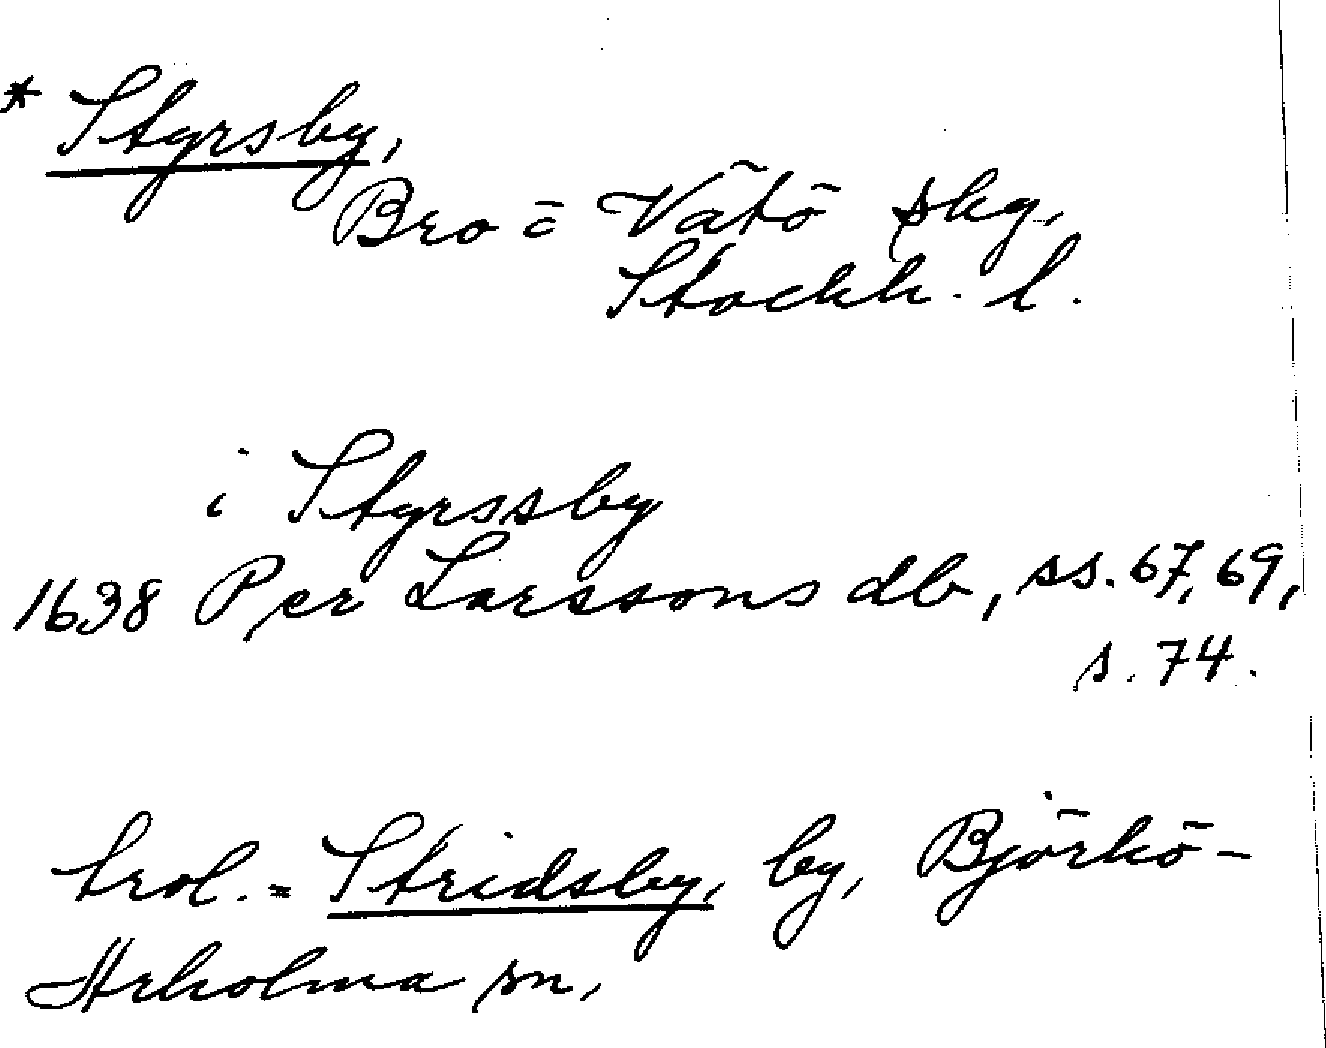 * Styrsby,
Bro o Vätö skg,
Stockh. l.
i Styrssby
1638 Per Larssons db, ss. 67, 69,
s. 74.
trol. = Stridsby, by, Björkö-
Arholma sn,